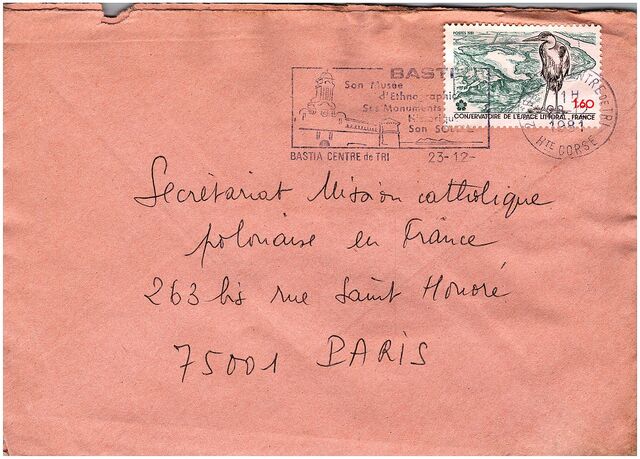 POSTES 1981
1,60
CONSERVATOIRE DE L'ESPACE LITTORAL. FRANCE
BASTI
Son Musée
d'Ethnographi
Ses Monuments
Historiqu
Son SOL
BASTIA CENTRE de TRI 23-12-
TRE DE TRI
H
1981
HTE CORSE
Secrétariat Mission catholique
polonaise en France
263 bis rue Saint Honoré
75001 PARIS